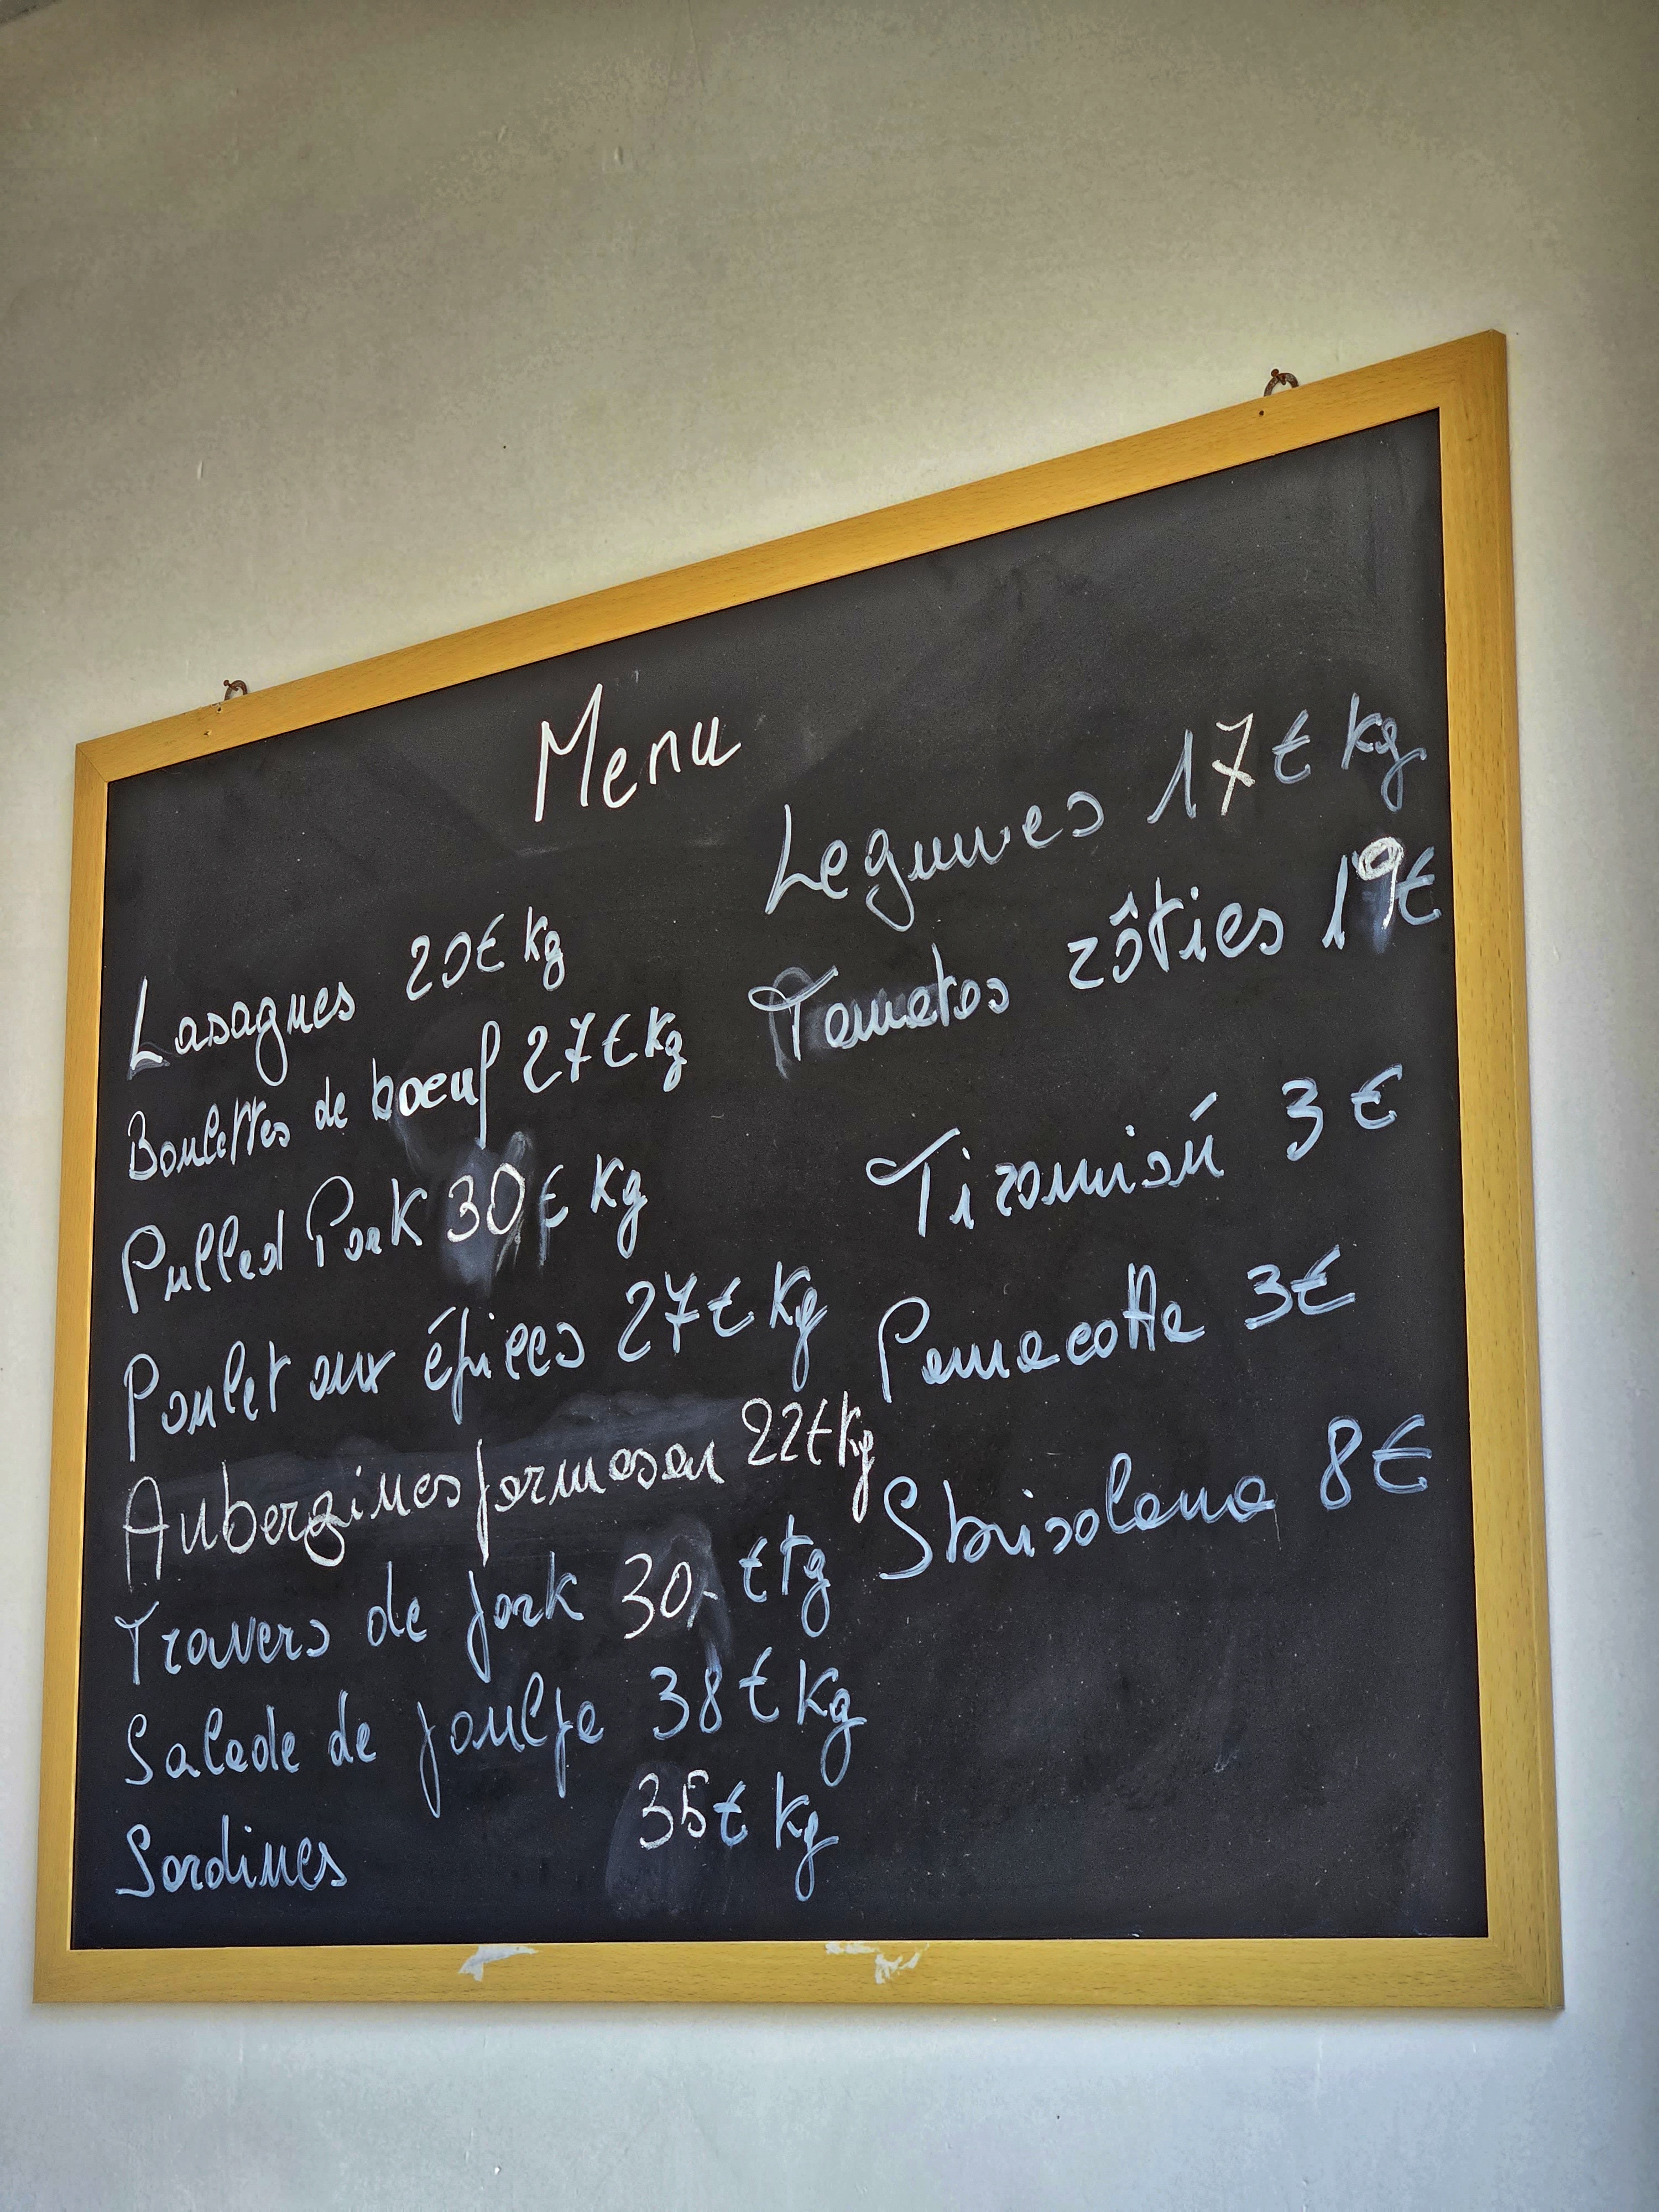 Menu
Lasagnes 20€ kg
Boulettes de boeuf 27€ kg
Pulled Pork 30€ kg
Poulet aux épices 27€ kg
Aubergines parmesan 22€ kg
Travers de pork 30 € kg
Salade de poulpe 38€ kg
Sardines 35€ kg
Legumes 17€ kg
Tomates rôties 19€
Tiramisú 3€
Pannacotta 3€
Sbrisolana 8€